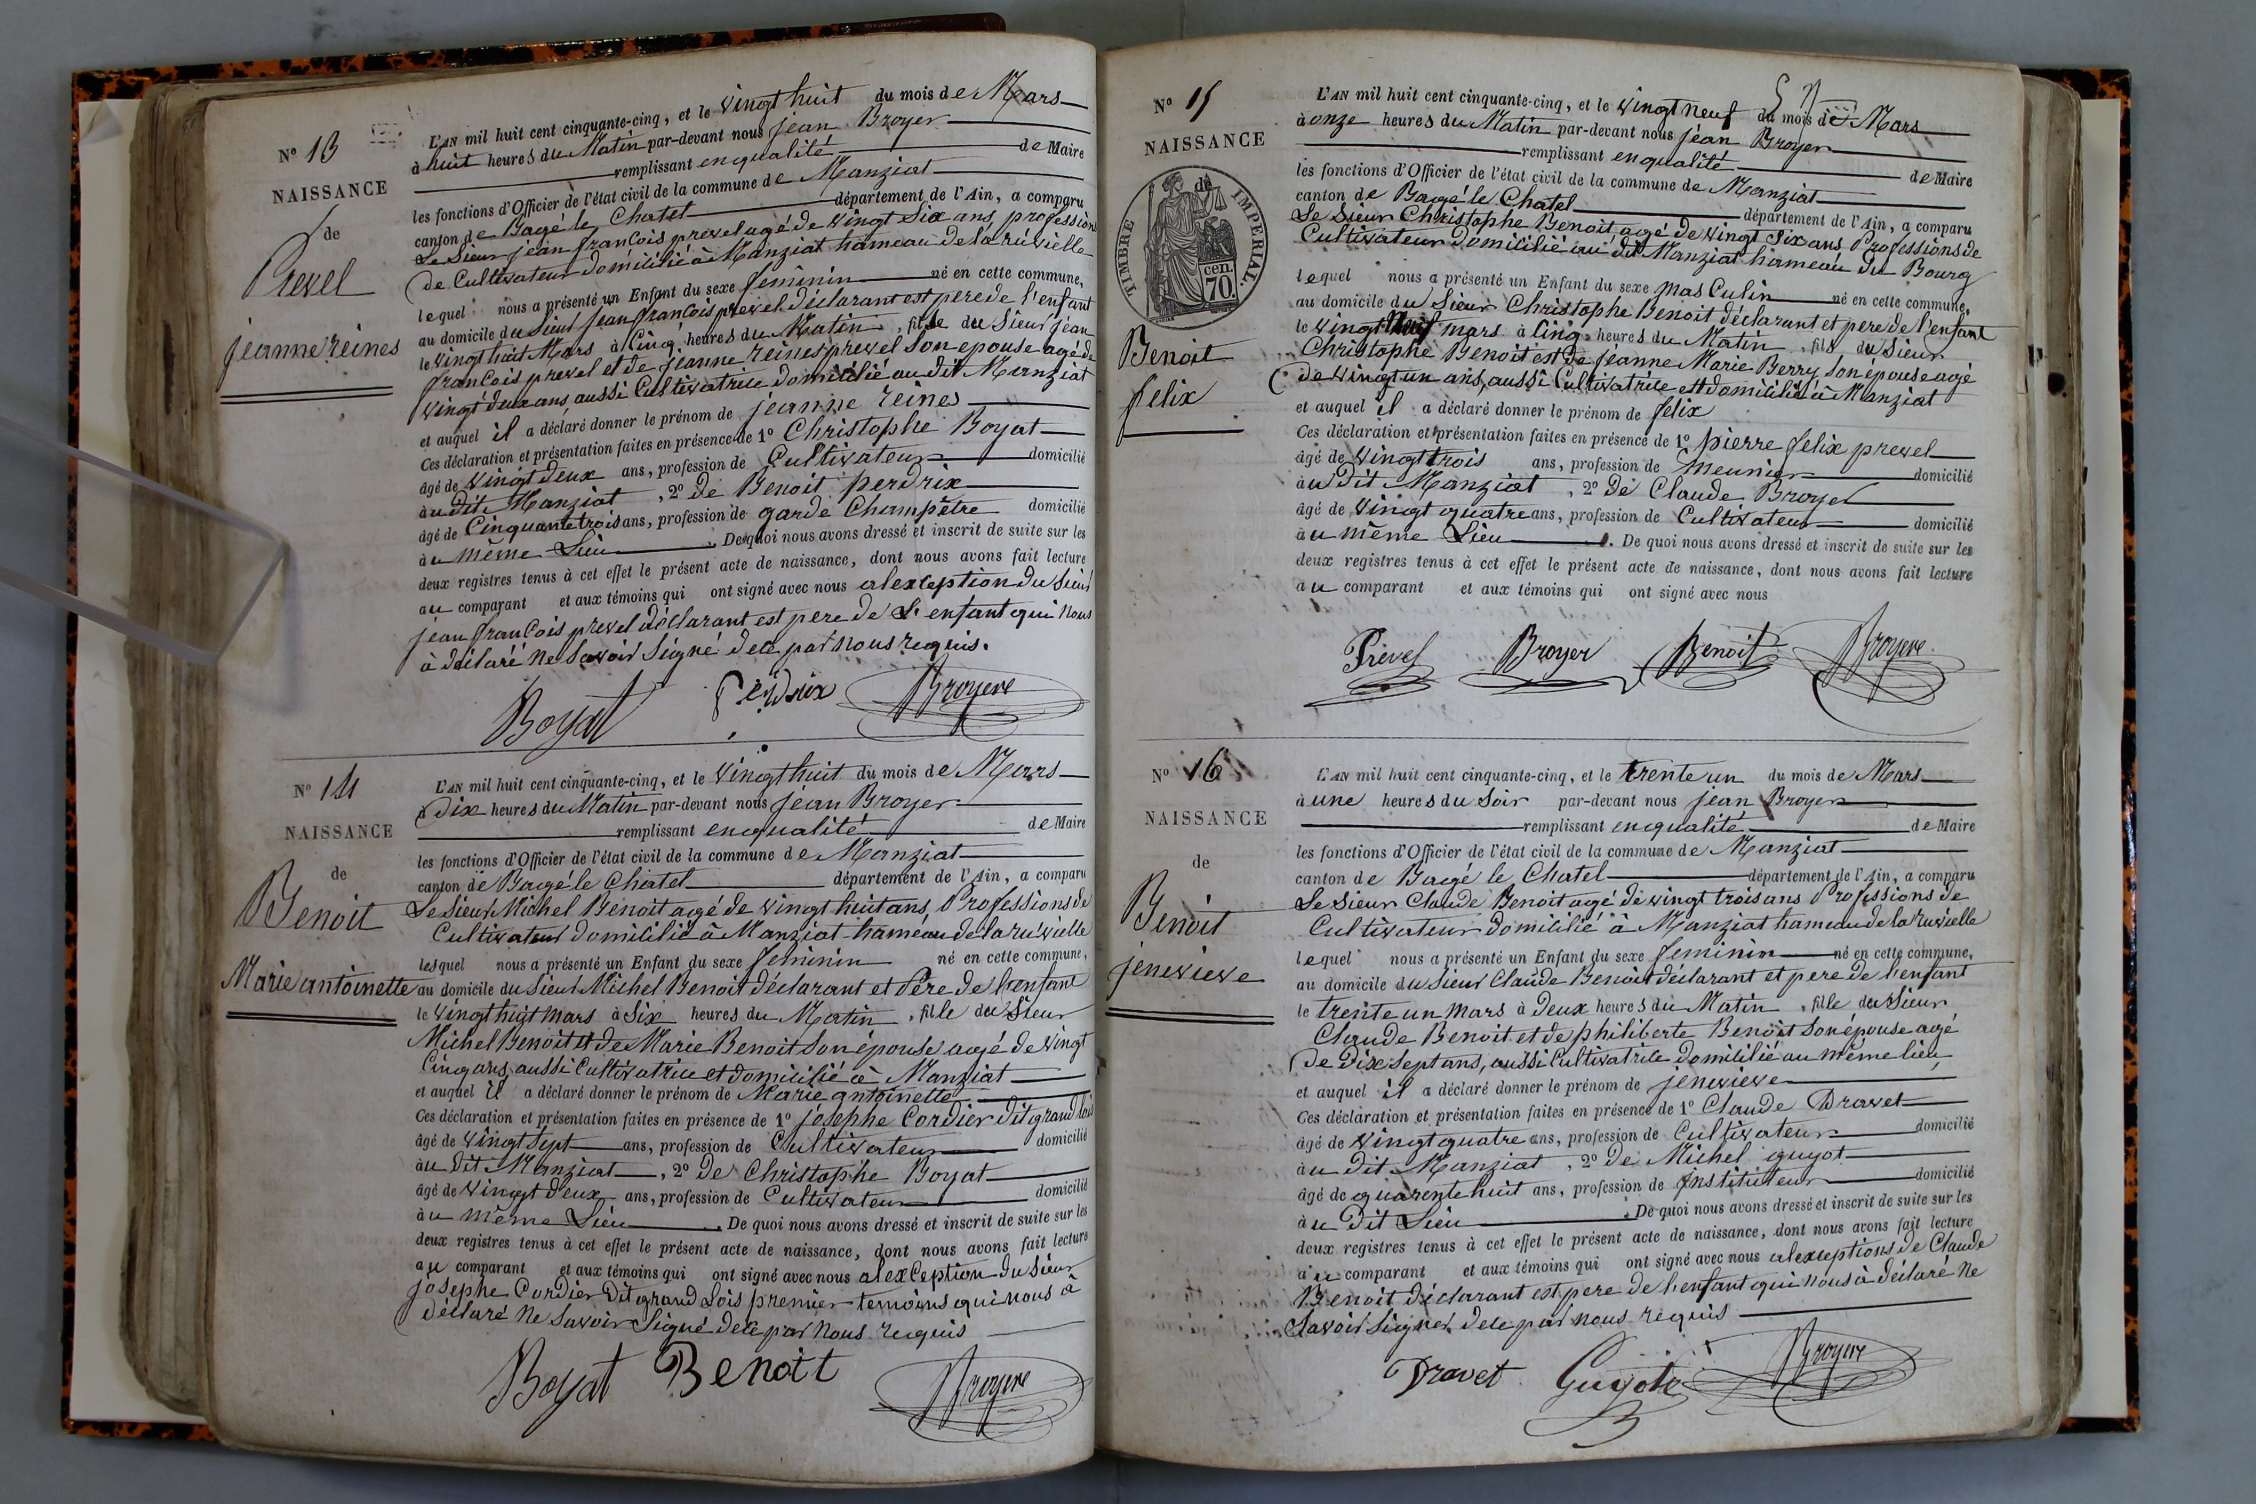 N° 13
NAISSANCE
de
Prevel
jeanne reines
L'AN mil huit cent cinquante-cinq, et le vingt huit du mois de Mars
à huit heures du Matin par-devant nous jean Broyer
remplissant en qualité de Maire
les fonctions d'Officier de l'état civil de la commune de Manziat
canton de Bagé le Chatel département de l'Ain, a comparu
Le Sieur jean francois prevel agé de vingt six ans, profession
de Cultivateur domicilié à Manziat hameau de la ruvielle
lequel nous a présenté un Enfant du sexe feminin né en cette commune,
au domicile du Sieur jean francois prevel déclarant est pere de l'enfant
le vingt huit Mars à Cinq heures du Matin, fille du Sieur jean
francois prevel et de jeanne reines prevel Son epouse agé de
vingt deux ans, aussi Cultivatrice domicilié au dit Manziat
et auquel il a déclaré donner le prénom de jeanne reines
Ces déclaration et présentation faites en présence de 1° Christophe Boyat
âgé de vingt deux ans, profession de Cultivateur domicilié
au dit Manziat, 2° de Benoit perdrix
âgé de Cinquante trois ans, profession de garde Champêtre domicilié
au même Lieu. De quoi nous avons dressé et inscrit de suite sur les
deux registres tenus à cet effet le présent acte de naissance, dont nous avons fait lecture
au comparant et aux témoins qui ont signé avec nous alexception du Sieur
jean francois prevel déclarant est pere de L'enfant qui nous
à déclaré ne Savoir Signé de ce par nous requis.
Boyat Perdrix Broyere
N° 14
NAISSANCE
de
Benoit
Marie antoinette
L'AN mil huit cent cinquante-cinq, et le vingt huit du mois de Mars
à Dix heures du Matin par-devant nous jean Broyer
remplissant en qualité de Maire
les fonctions d'Officier de l'état civil de la commune de Manziat
canton de Bagé le Chatel département de l'Ain, a comparu
Le Sieur Michel Benoit agé de vingt huit ans, Professions de
Cultivateur domicilié à Manziat hameau de la ruvielle
lesquel nous a présenté un Enfant du sexe feminin né en cette commune,
au domicile du Sieur Michel Benoit déclarant et Père de l'enfant
le vingt huit mars à Six heures du Matin, fille du Sieur
Michel Benoit et de Marie Benoit Son épouse agé de vingt
Cinq ans, aussi Cultivatrice et domicilié à Manziat
et auquel il a déclaré donner le prénom de Marie antoinette
Ces déclaration et présentation faites en présence de 1° josephe Cordier Dit grand lois
âgé de vingt Sept ans, profession de Cultivateur domicilié
au Dit Manziat, 2° De Christophe Boyat
âgé de vingt deux ans, profession de Cultivateur domicilié
au même Lieu. De quoi nous avons dressé et inscrit de suite sur les
deux registres tenus à cet effet le présent acte de naissance, dont nous avons fait lecture
au comparant et aux témoins qui ont signé avec nous alexCeption du Sieur
josephe Cordier Dit grand Lois premier temoins qui nous à
déclaré ne Savoir Signé de ce par nous requis
Boyat Benoit Broyere
N° 15
NAISSANCE
de
TIMBRE IMPERIAL.
70 cen.
Benoit
felix
L'AN mil huit cent cinquante-cinq, et le vingt neuf du mois de Mars
à onze heures du Matin par-devant nous jean Broyer
remplissant en qualité de Maire
les fonctions d'Officier de l'état civil de la commune de Manziat
canton de Bagé le Chatel département de l'Ain, a comparu
Le Sieur Christophe Benoit agé de vingt Six ans Professions de
Cultivateur domicilié au dit Manziat hameau du Bourg
lequel nous a présenté un Enfant du sexe masCulin né en cette commune,
au domicile du Sieur Christophe Benoit déclarant et pere de l'enfant
le vingt Neuf mars à Cinq heures du Matin, fils du Sieur
Christophe Benoit est de jeanne Marie Berry Son épouse agé
de vingt un ans, aussi Cultivatrice est domicilié à Manziat
et auquel il a déclaré donner le prénom de felix
Ces déclaration et présentation faites en présence de 1° pierre felix prevel
âgé de vingt trois ans, profession de meunier domicilié
au dit Manziat, 2° De Claude Broyer
âgé de vingt quatre ans, profession de Cultivateur domicilié
au même Lieu. De quoi nous avons dressé et inscrit de suite sur les
deux registres tenus à cet effet le présent acte de naissance, dont nous avons fait lecture
au comparant et aux témoins qui ont signé avec nous
Prevel Broyer Benoit Broyere
N° 16
NAISSANCE
de
Benoit
jenevieve
L'AN mil huit cent cinquante-cinq, et le trente un du mois de Mars
à une heures du Soir par-devant nous jean Broyer
remplissant en qualité de Maire
les fonctions d'Officier de l'état civil de la commune de Manziat
canton de Bagé le Chatel département de l'Ain, a comparu
Le Sieur Claude Benoit agé de vingt trois ans Professions de
Cultivateur domicilié à Manziat hameau de la ruvielle
lequel nous a présenté un Enfant du sexe feminin né en cette commune,
au domicile du Sieur Claude Benoit déclarant et pere de l'enfant
le trente un mars à Deux heures du Matin, fille du Sieur
Claude Benoit et de philiberte Benoit Son épouse agé
de Dix Sept ans, aussi Cultivatrice domicilié au même lieu
et auquel il a déclaré donner le prénom de jenevieve
Ces déclaration et présentation faites en présence de 1° Claude Dravet
âgé de vingt quatre ans, profession de Cultivateur domicilié
au Dit Manziat, 2° de Michel guyot
âgé de quarente huit ans, profession de Instituteur domicilié
au Dit Lieu. De quoi nous avons dressé et inscrit de suite sur les
deux registres tenus à cet effet le présent acte de naissance, dont nous avons fait lecture
au comparant et aux témoins qui ont signé avec nous alexceptions de Claude
Benoit déclarant est pere de l'enfant qui nous à déclaré ne
Savoir Signer de ce par nous requis
Dravet Guyot Broyere